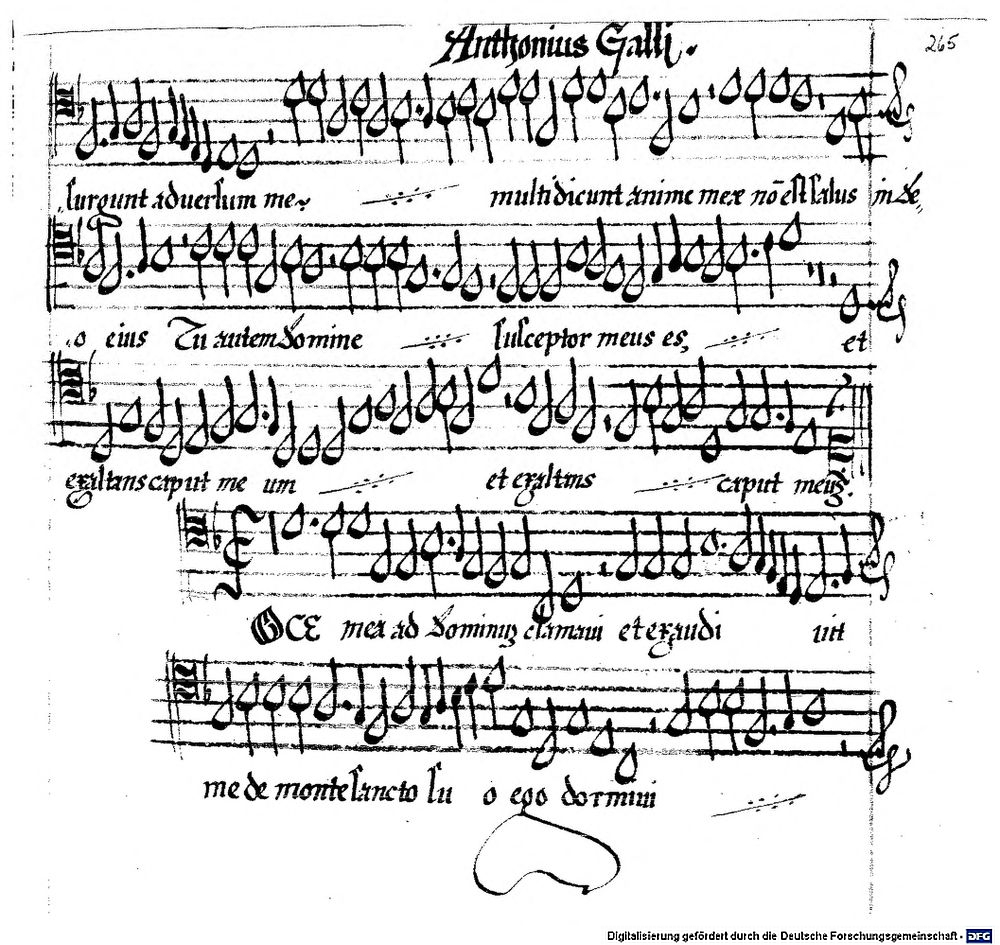 Anthonius Galli.
265
surgunt adversum me
multi dicunt anime meæ nō est salus in de,
o eius Tu autem domine susceptor meus es, et
exaltans caput me um et exaltans caput meūz
VOCE mea ad dominuz clamavi et exaudi vit
me de monte sancto su o ego dormivi
Digitalisierung gefördert durch die Deutsche Forschungsgemeinschaft - DFG